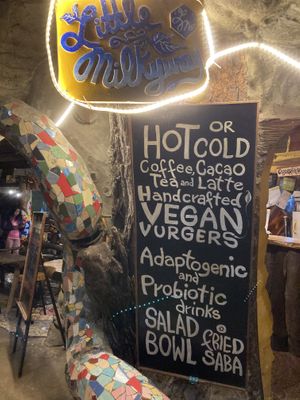 Little
Milkyway
HOT OR COLD
Coffee, Cacao
Tea and Latte
Handcrafted
VEGAN
VURGERS
Adaptogenic
and
Probiotic
drinks
SALAD
BOWL
FRIED
SABA